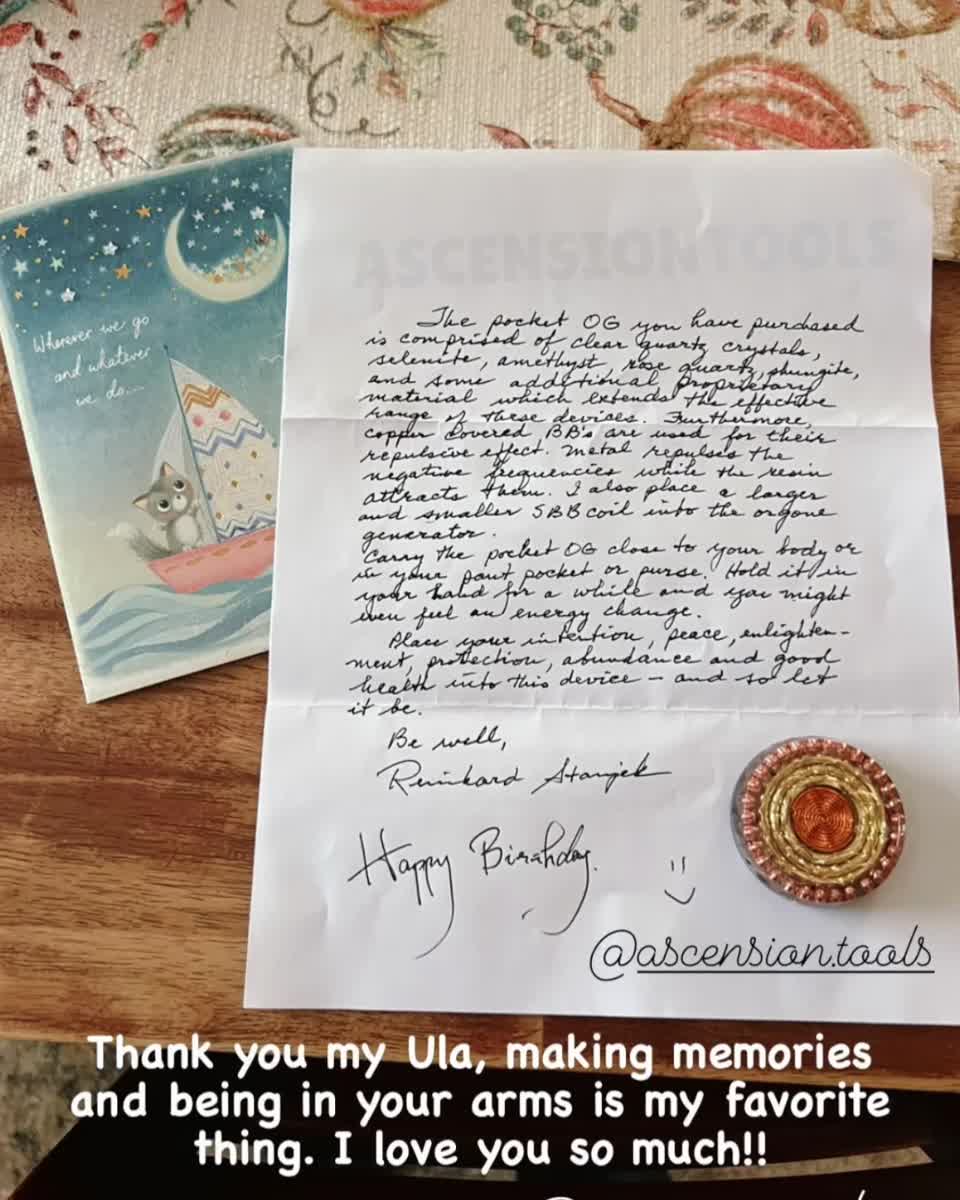 Wherever we go
and whatever
we do...
ASCENSIONTOOLS
The pocket OG you have purchased
is comprised of clear quartz crystals,
selenite, amethyst, rose quartz, shungite,
and some additional proprietary
material which extends the effective
range of these devices. Furthermore,
copper covered BB's are used for their
repulsive effect. Metal repulses the
negative frequencies while the resin
attracts them. I also place a larger
and smaller SBB coil into the orgone
generator.
Carry the pocket OG close to your body or
in your pant pocket or purse. Hold it in
your hand for a while and you might
even feel an energy change.
Place your intention, peace, enlighten-
ment, protection, abundance and good
health into this device - and so let
it be.
Be well,
Reinhard Stanjek
Happy Birthday.
@ascension.tools
Thank you my Ula, making memories
and being in your arms is my favorite
thing. I love you so much!!